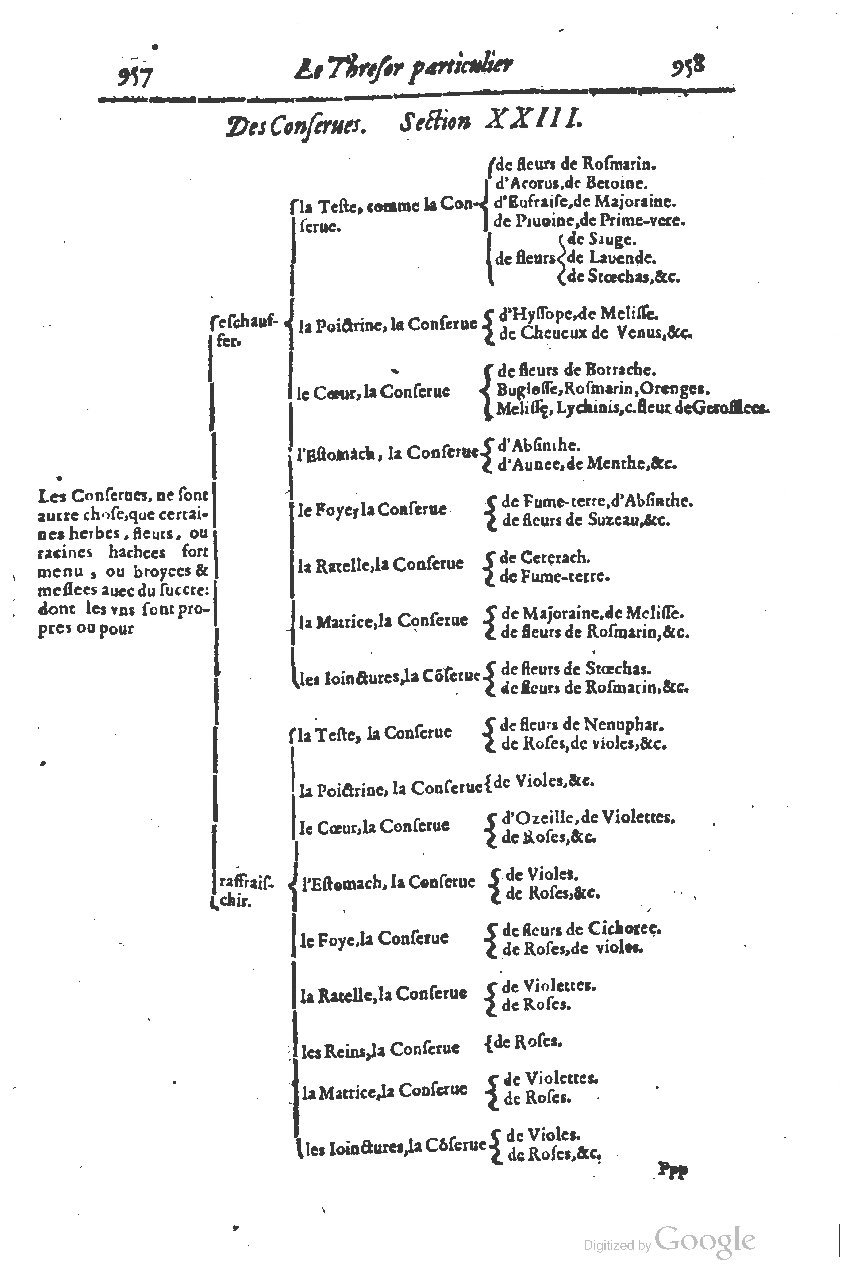 957 Le Threſor particulier 958
Des Conſerues. Section XXIII.
Les Conſerues, ne ſont
autre choſe,que certai-
nes herbes, fleurs, ou
racines hachees fort
menu, ou broyees &
meſlees auec du ſuccre:
dont les vns ſont pro-
pres ou pour
eſchauf-
fer.
la Teſte, comme la Con-
ſerue.
de fleurs de Roſmarin.
d'Acorus,de Betoine.
d'Eufraiſe,de Majoraine.
de Piuoine,de Prime-vere.
de fleurs
de Sauge.
de Lauende.
de Stœchas,&c.
la Poictrine, la Conſerue
d'Hyſſope,de Meliſſe.
de Cheueux de Venus,&c.
le Cœur,la Conſerue
de fleurs de Borrache.
Bugloſſe,Roſmarin,Orenges.
Meliſſe, Lychinis,c.fleur deGerofflees.
l'Eſtomach, la Conſerue
d'Abſinthe.
d'Aunee,de Menthe,&c.
le Foye,la Conſerue
de Fume-terre,d'Abſinthe.
de fleurs de Suzeau,&c.
la Ratelle,la Conſerue
de Ceterach.
de Fume-terre.
la Matrice,la Conſerue
de Majoraine,de Meliſſe.
de fleurs de Roſmarin,&c.
les Ioinctures,la Cõſerue
de fleurs de Stœchas.
de fleurs de Roſmarin,&c.
raffraiſ-
chir.
la Teſte, la Conſerue
de fleurs de Nenuphar.
de Roſes,de violes,&c.
la Poictrine, la Conſerue
de Violes,&c.
le Cœur,la Conſerue
d'Ozeille,de Violettes.
de Roſes,&c.
l'Eſtomach, la Conſerue
de Violes.
de Roſes,&c.
le Foye,la Conſerue
de fleurs de Cichoree.
de Roſes,de violes.
la Ratelle,la Conſerue
de Violettes.
de Roſes.
les Reins,la Conſerue
de Roſes.
la Matrice,la Conſerue
de Violettes.
de Roſes.
les Ioinctures,la Cõſerue
de Violes.
de Roſes,&c.
Ppp
Digitized by Google